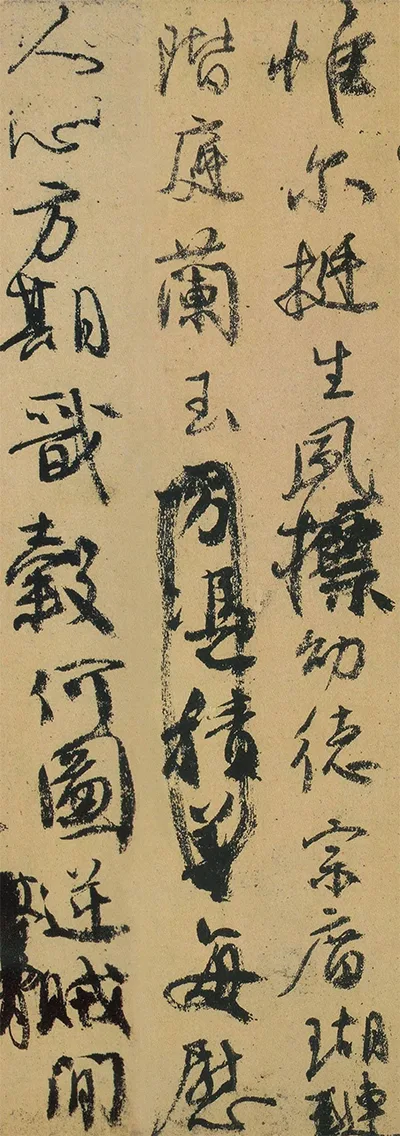 惟尔挺生夙標幼德宗廟瑚璉
階庭蘭玉方憑積善每慰
人心方期戩穀何圖逆賊閒